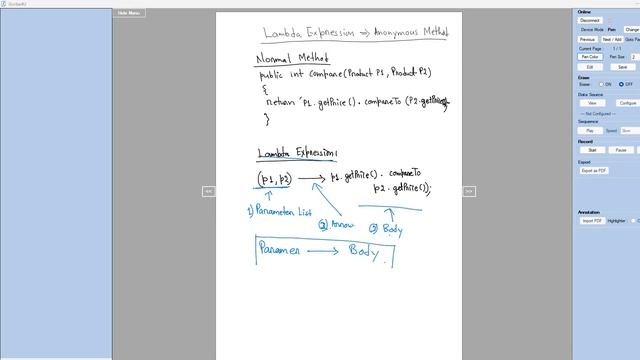 Hide Menu
Lambda Expression ⇒ Anonymous Method
Normal Method
public int compare(Product P1, Product P2)
{
return P1.getPrice(). compareTo (P2.getPrice
}
Lambda Expression:
(p1, p2) → p1.getPrice(). compareTo
p2.getPrice());
1) Parameter List
2) Arrow
3) Body
Paramer → Body
<<
>>
Online
Disconnect
Device Mode : Pen
Change
Previous
Next / Add
Goto
Current Page : 1 / 1
Pen Color
Pen Size : 2
Edit
Save
Erase
Eraser :
ON
OFF
Data Source :
View
Configure
--- Not Configured ---
Sequence :
Play
Speed
Record
Start
Pause
Export
Export as PDF
Annotation
Import PDF
Highlighter :